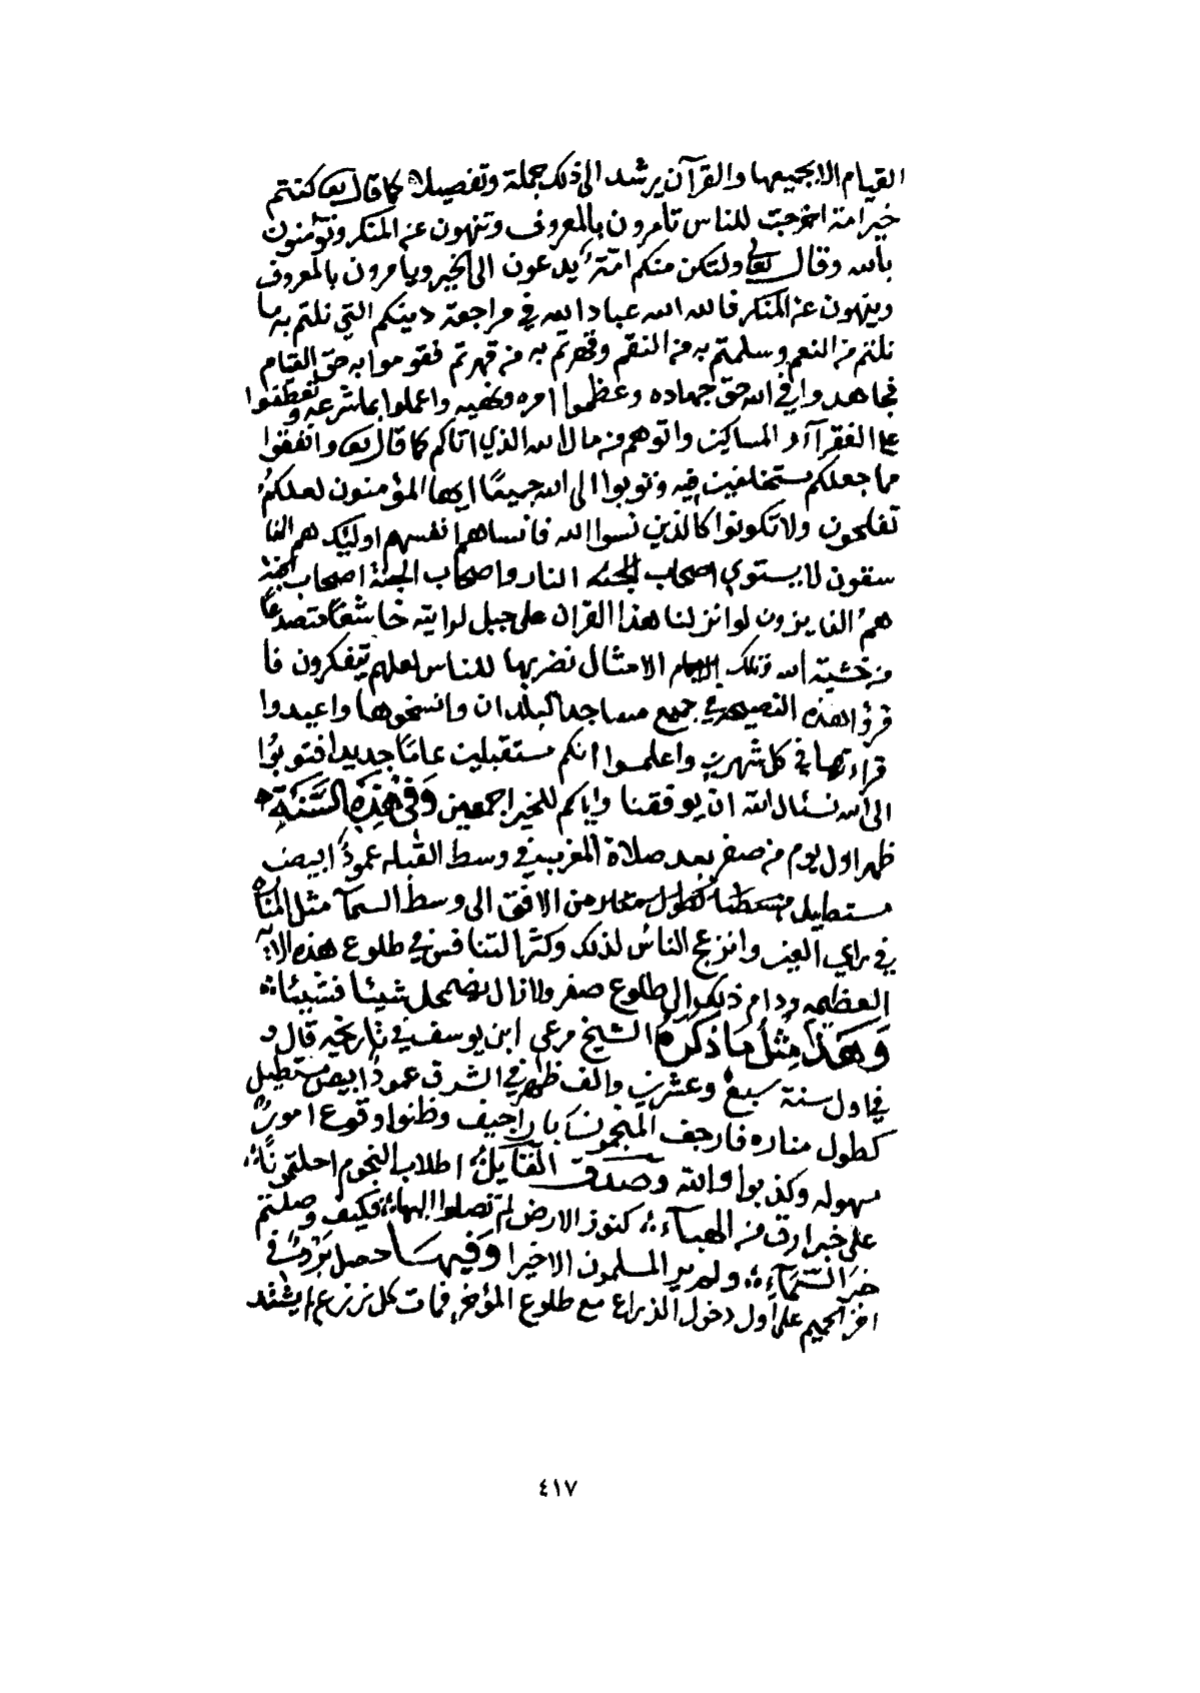 القيام الا بجميعها والقرآن يرشد الى ذلك جملة وتفصيلا كما قال تعا كنتم
خير امة اخرجت للناس تامرون بالمعروف وتنهون عن المنكر وتؤمنون
بالله وقال تعالى ولتكن منكم امة يدعون الى الخير ويامرون بالمعروف
وينهون عن المنكر فالله الله عباد الله في مراجعة دينكم التي نلتم به ما
نلتم من النعم وسلمتم به من النقم وقهرتم به من قهرتم فقوموا به حق القيام
فجاهدوا في الله حق جهاده وعظموا امره ونهيه واعملوا بما شرعه وتعطفوا
على الفقرآء والمساكين واتوهم من مال الله الذي اتاكم كما قال تعا وانفقوا
مما جعلكم مستخلفين فيه وتوبوا الى الله جميعًا ايها المؤمنون لعلكم
تفلحون ولا تكونوا كالذين نسوا الله فانساهم انفسهم اوليك هم الفا
سقون لا يستوي اصحاب النار واصحاب الجنة اصحاب الجنة
هم الفايزون لو انزلنا هذا القران على جبل لرايته خاشعًا متصدعًا
من خشية الله وتلك الامثال نضربها للناس لعلهم يتفكرون فا
قرؤا هذه النصيحة في جميع مساجد البلدان وانسخوها واعيدوا
قراءتها في كل شهرين واعلموا انكم مستقبلين عامًا جديدا فتوبوا
الى الله نسئال الله ان يوفقنا واياكم للخير اجمعين وَفي هَذِهِ السَّنَةِ
ظهر اول يوم من صفر بعد صلاة المغرب في وسط القبله عمودًا ابيض
مستطيل من الافق الى وسط السمآ مثل المناره
في راي العين وانزعج الناس لذلك وكثر التنافس في طلوع هذه الايه
العظيمه ودام ذلك الى طلوع صفر ولا زال يضمحل شيئا فشيئا
وَهَذَا مِثْلُ مَا ذَكَرَهُ الشيخ مرعي ابن يوسف في تاريخه قال و
في اول سنة سبع وعشرين والف ظهر في الشرق عمودًا ابيض مستطيل
كطول مناره فارجف المنجمون باراجيف وظنوا وقوع امور
مهوله وكذبوا والله وصدق القايل اطلاب النجوم احلتمونا
على خبر ارق من الهبآء كنوز الارض لم تصلوا اليها فكيف وصلتم
خبر السَّمآءِ ولم ير المسلمون الا خيرا وَفيهَا حصل بَرْدٌ في
اخر الحميم على اول دخول الذراع مع طلوع المؤخر فمات كل زرع لم يشتد
٤١٧